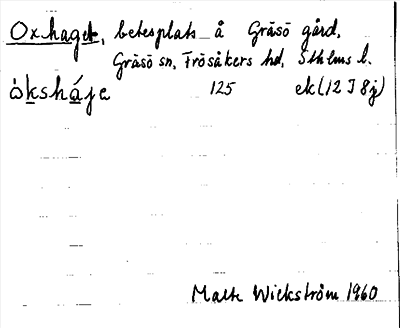 Oxhaget, betesplats å Gräsö gård,
Gräsö sn, Frösåkers hd, Sthlms l.
ȯkshája 125 ek (12 I 8j)
Malte Wickström 1960